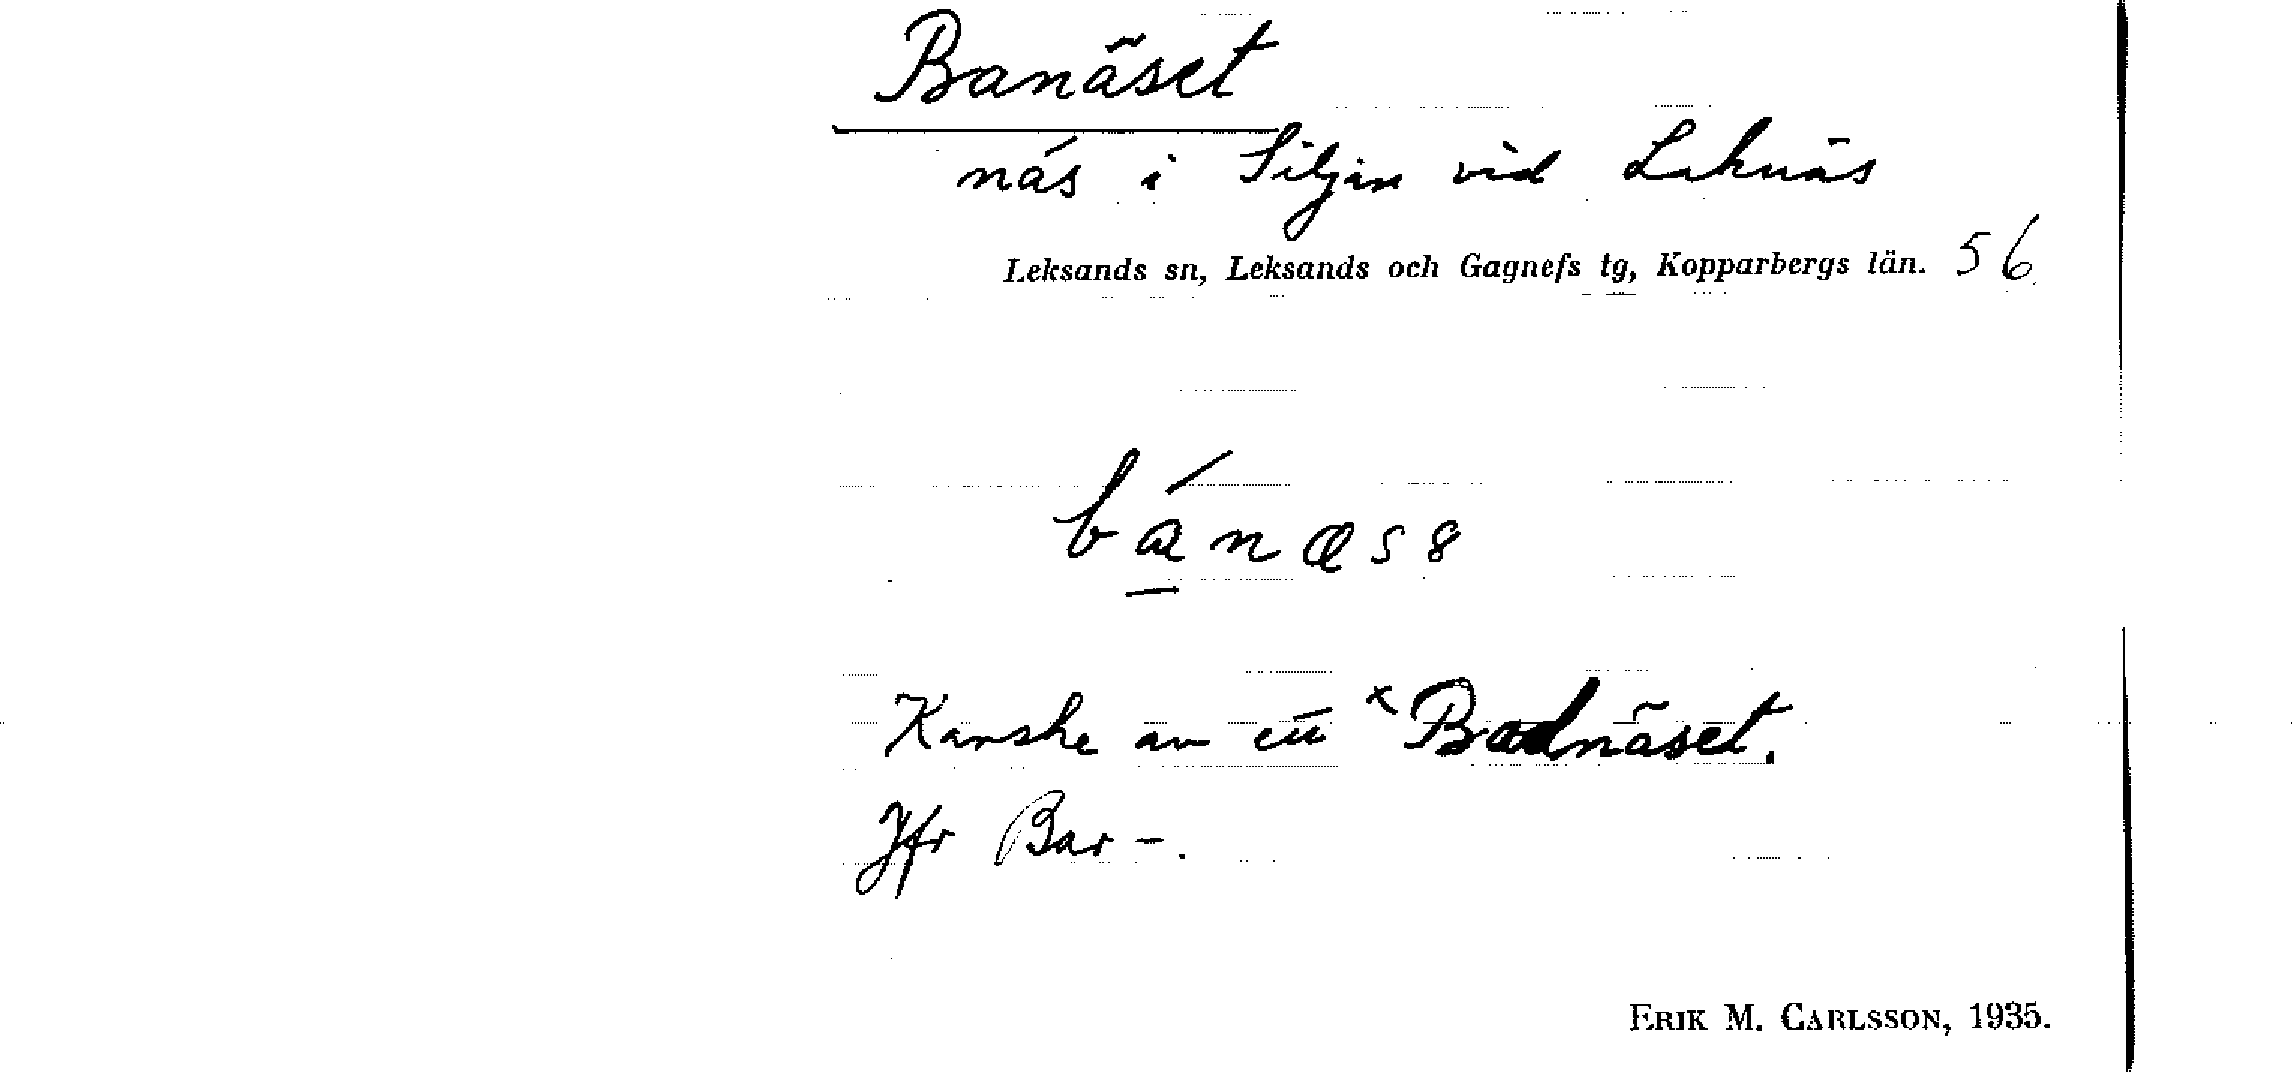 Banäset
näs i Siljan vid Laknäs
Leksands sn, Leksands och Gagnefs tg, Kopparbergs län. 56
bánæsə
Kanske av ett *Badnäset.
Jfr Bar-.
ERIK M. CARLSSON, 1935.